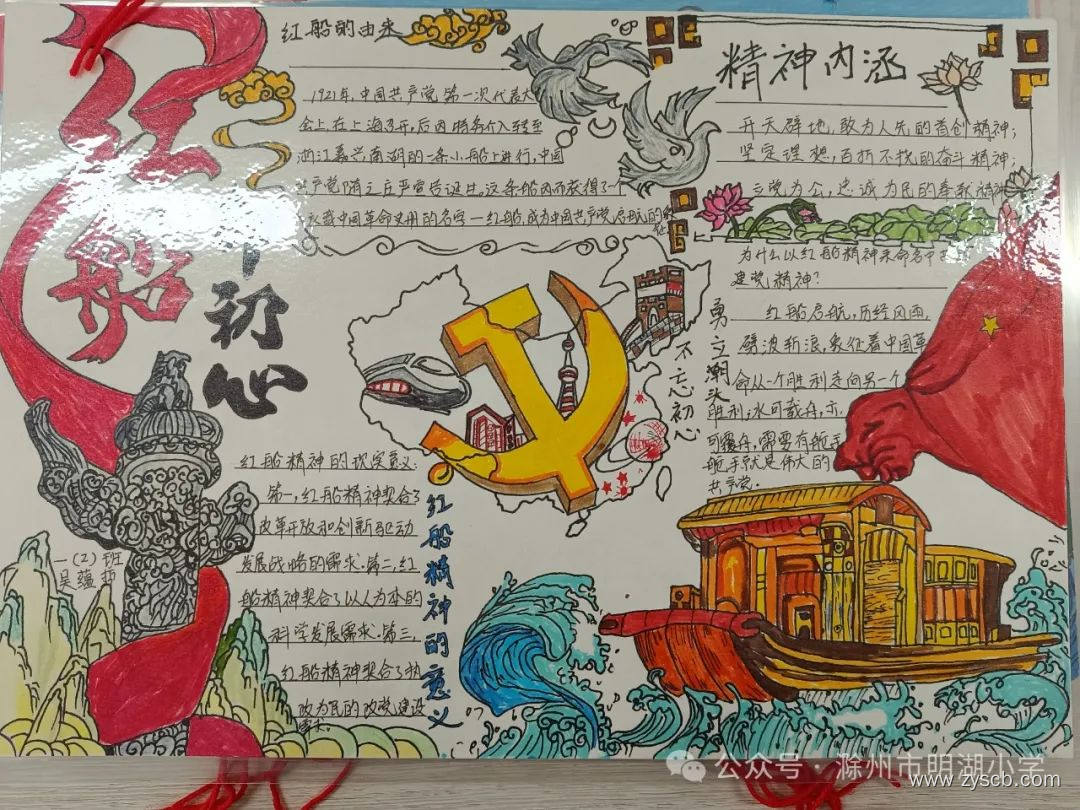 红船
初心
红船的由来
1921年,中国共产党第一次代表大
会上在上海召开,后因特务介入转至
浙江嘉兴南湖的一条小船上进行,中国
共产党随之庄严宣告诞生,这条船因而获得了一个
永载中国革命史册的名字—红船,成为中国共产党启航的
精神内涵
开天辟地,敢为人先的首创精神;
坚定理想,百折不挠的奋斗精神;
立党为公,忠诚为民的奉献精神
为什么以红船精神来命名中
建党精神?
红船启航,历经风雨,
劈波斩浪,象征着中国革
命从一个胜利走向另一个
胜利;水可载舟,亦
可覆舟,需要有舵手
舵手就是伟大的
共产党.
勇立潮头
不忘初心
红船精神的现实意义:
第一,红船精神契合了
改革开放和创新驱动
发展战略的需求.第二,红
船精神契合了以人为本的
科学发展需求.第三,
红船精神契合了执
政为民的政党建设
需求.
红船精神的意义
一(2)班
公众号·滁州市明湖小学
www.zyscb.com